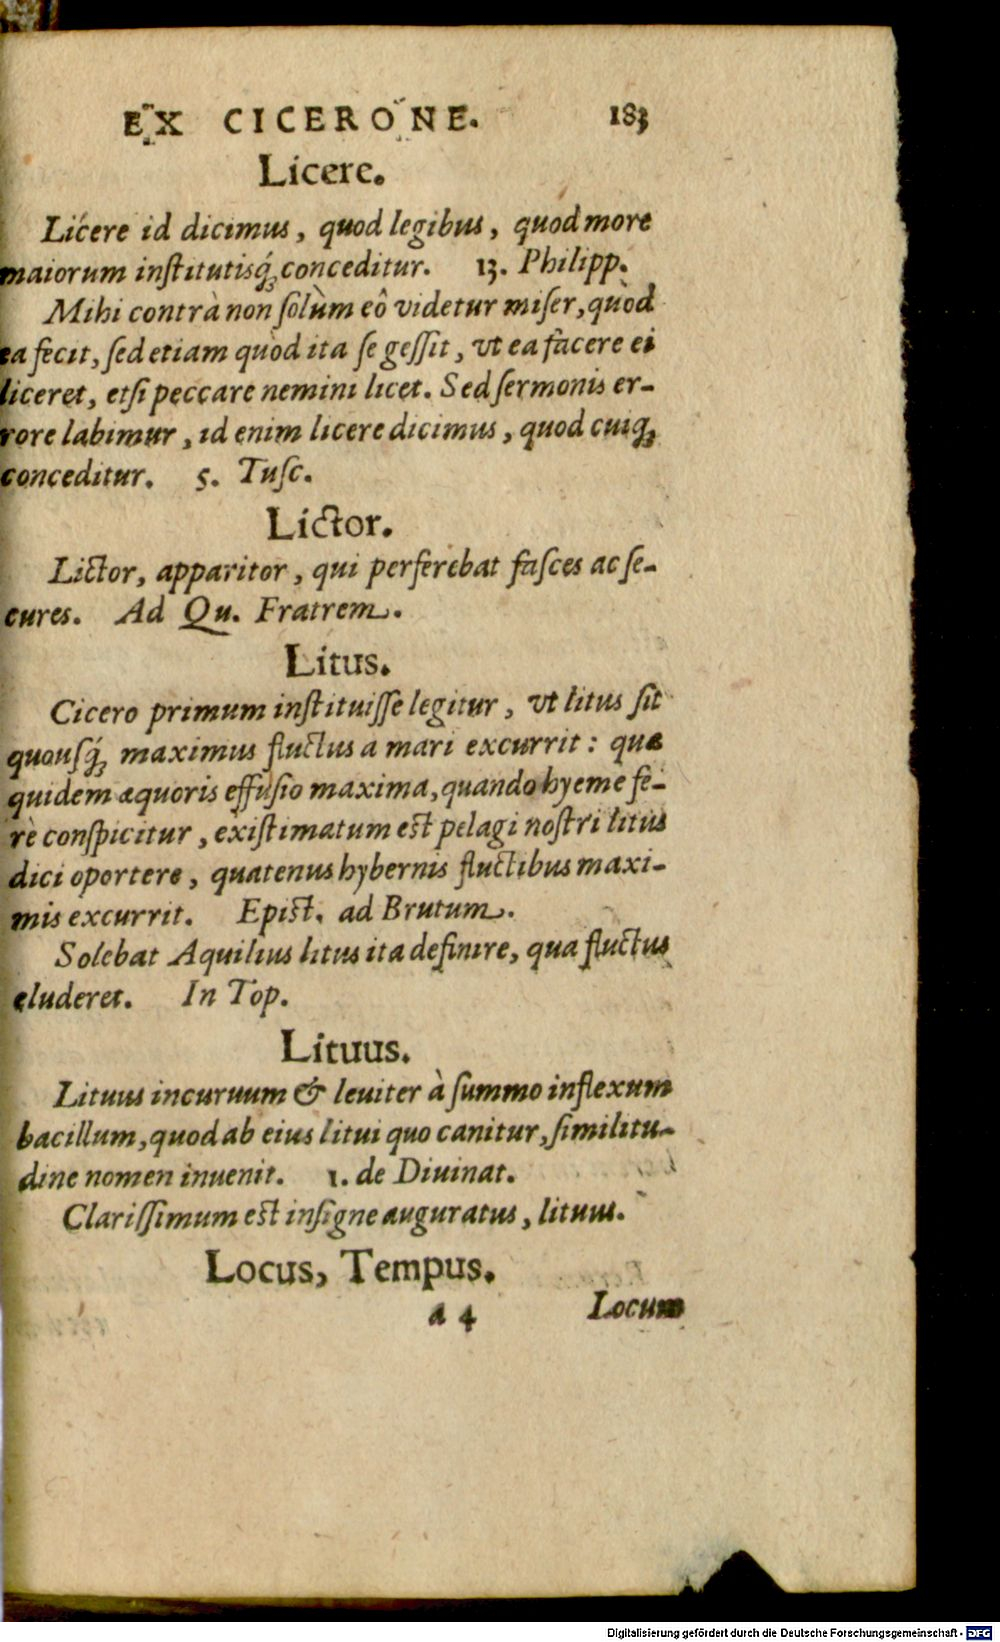 EX CICERONE. 183
Licere.
Licere id dicimus, quod legibus, quod more
maiorum institutisq́; conceditur. 13. Philipp.
Mihi contrà non ſolùm eô videtur miſer, quòd
ea fecit, ſed etiam quòd ita ſe geſſit, vt ea facere ei
liceret, etſi peccare nemini licet. Sed ſermonis er-
rore labimur, id enim licere dicimus, quod cuiq;
conceditur. 5. Tuſc.
Lictor.
Lictor, apparitor, qui perferebat faſces ac ſe-
cures. Ad Qu. Fratrem.
Litus.
Cicero primum inſtituiſſe legitur, vt litus ſit
quouſq́; maximus fluctus a mari excurrit: quæ
quidem æquoris effuſio maxima, quando hyeme fe-
rè conſpicitur, exiſtimatum eſt pelagi noſtri litus
dici oportere, quatenus hybernis fluctibus maxi-
mis excurrit. Epiſt. ad Brutum.
Solebat Aquilius litus ita definire, qua fluctus
eluderet. In Top.
Lituus.
Lituus incuruum & leuiter à ſummo inflexum
bacillum, quod ab eius litui quo canitur, ſimilitu-
dine nomen inuenit. 1. de Diuinat.
Clariſſimum eſt inſigne auguratus, lituus.
Locus, Tempus.
a 4 Locum
Digitalisierung gefördert durch die Deutsche Forschungsgemeinschaft - DFG